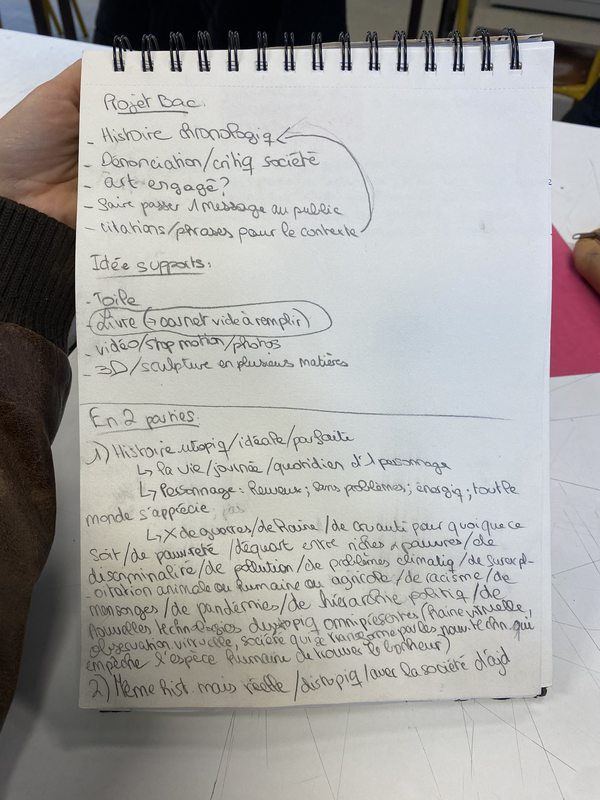 Projet Bac:
- Histoire chronologiq
- Dénonciation/critiq société
- art engagé?
- faire passer 1 message au public
- citations/phrases pour le contexte
Idée supports:
- Toile
- Livre (→ carnet vide à remplir)
- vidéo/stop motion/photos
- 3D/sculpture en plusieurs matières
En 2 parties:
1) Histoire utopiq/idéale/parfaite
↳ la vie/journée/quotidien d'1 personnage
↳ Personnage: heureux; sans problèmes; énergiq; tout le
monde s'apprécie
↳ X de guerres/de haine/de cruauté pour quoi que ce
soit/de pauvreté/d'écart entre riches & pauvres/de
discriminalité/de pollution/de problèmes climatiq/de surexpl-
oitation animale ou humaine ou agricole/de racisme/de
mensonges/de pandémies/de hiérarchie politiq/de
nouvelles technologies dystopiq omniprésentes (haine virtuelle,
observation virtuelle, société qui se transforme par les nouv. techn. qui
empêche l'espèce humaine de trouver le bonheur)
2) Même hist. mais réelle/distopiq/avec la société d'ajd